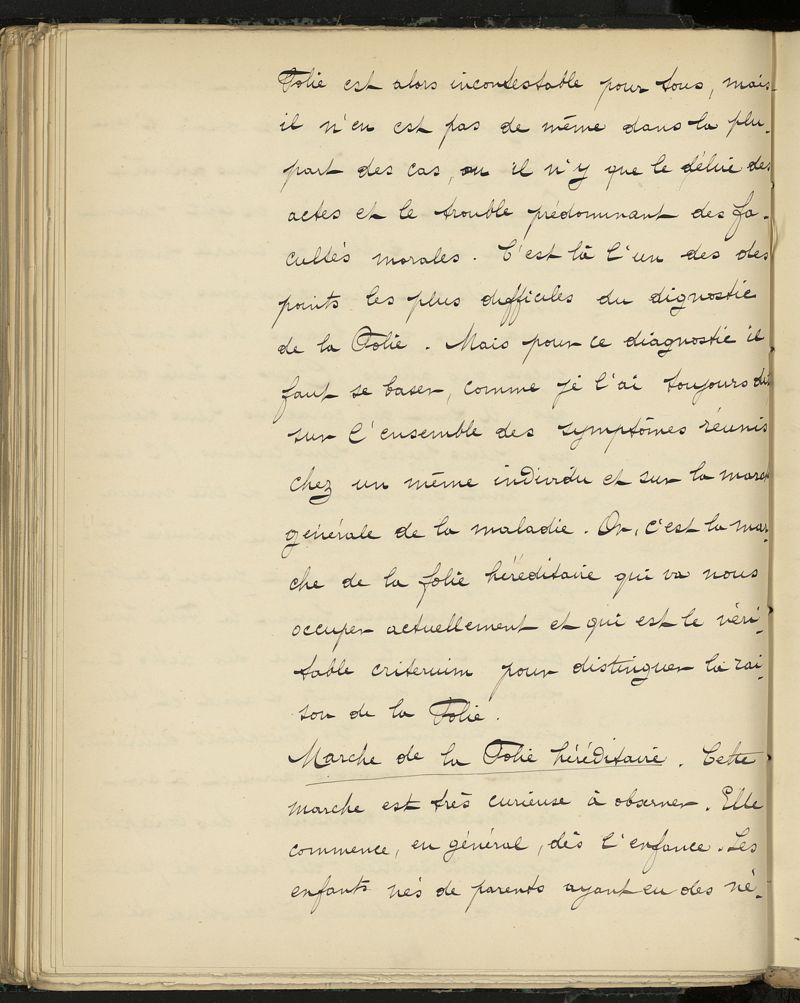 Folie est alors incontestable pour tous, mais
il n'en est pas de même dans la plu-
part des cas, ou il n'y que le délire des
actes et le trouble prédominant des fa-
cultés morales. C'est là l'un des des
points les plus difficiles du dignostic
de la Folie. Mais pour ce diagnostic il
faut se baser, comme je l'ai toujours dit
sur l'ensemble des symptômes réunis
chez un même individu et sur la marche
générale de la maladie. Or, c'est la mar-
che de la folie héréditaire qui va nous
occuper actuellement et qui est le véri-
table criterium pour distinguer la rai-
son de la Folie.
Marche de la Folie héréditaire. Cette
marche est très curieuse à observer. Elle
commence, en général, dès l'enfance. Les
enfants nés de parents ayant eu des né-